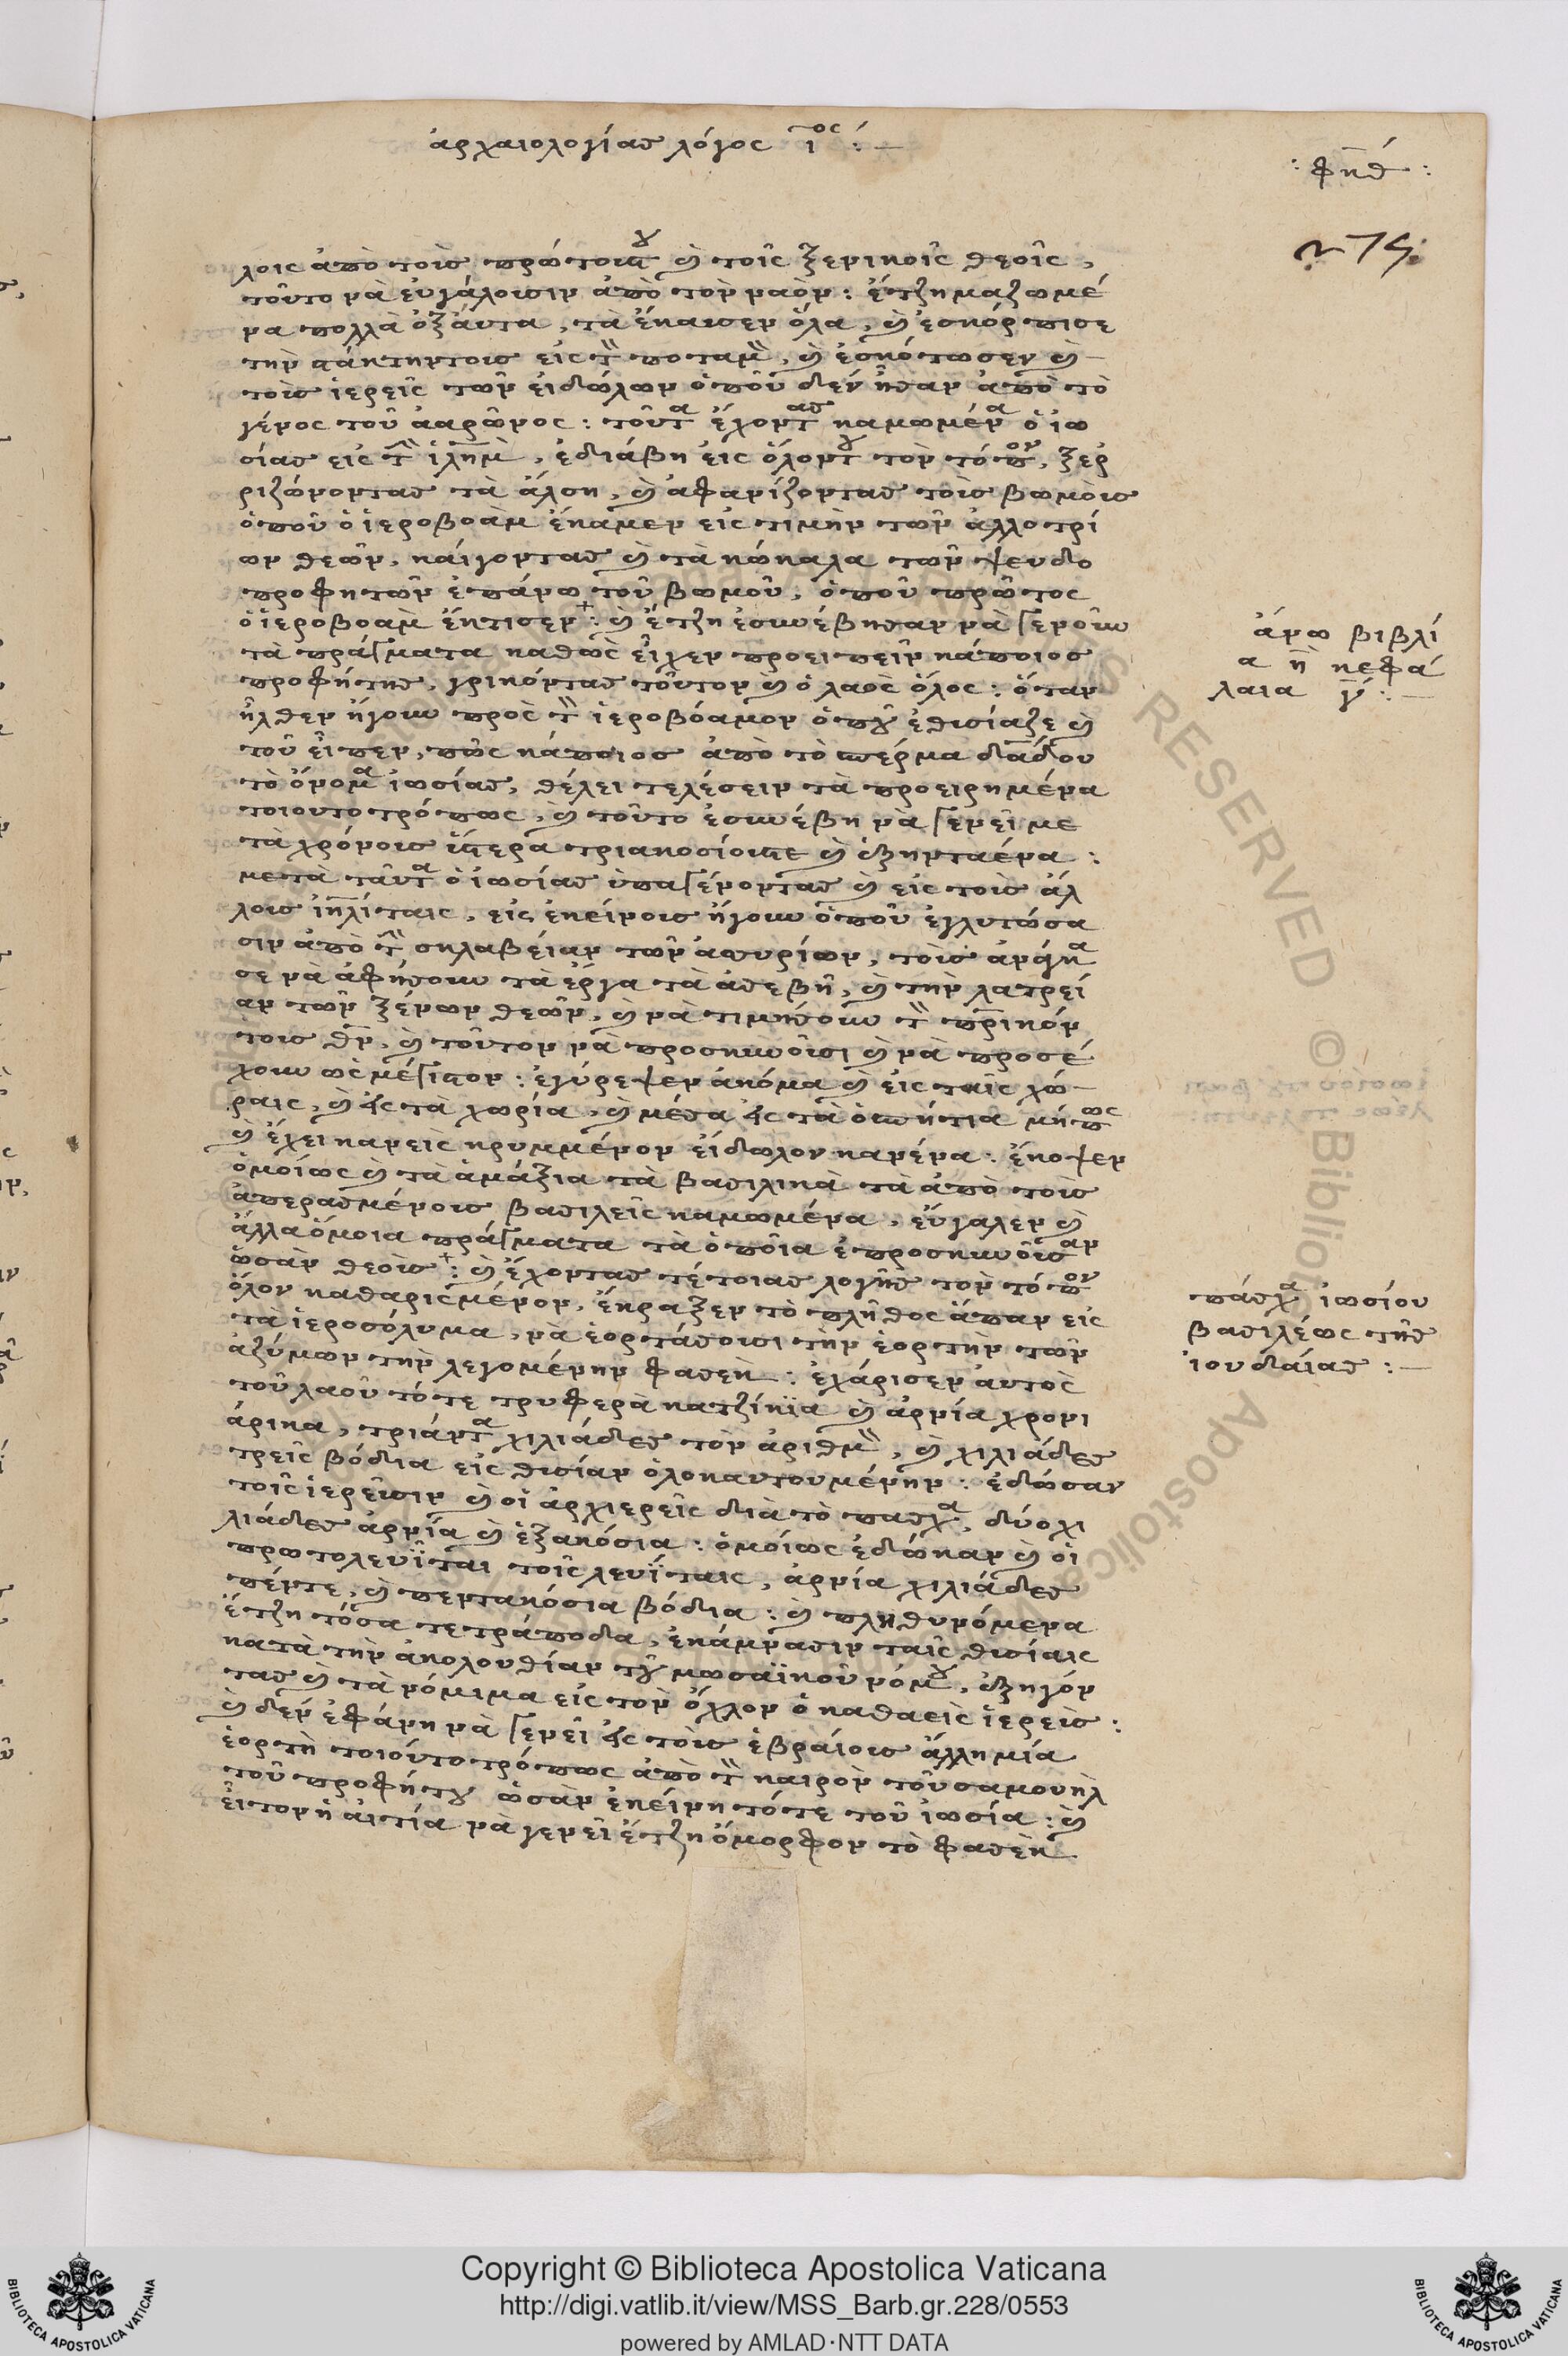 ἀρχαιολογίας λόγος ι^ος :—
: φηθ :
276.
λοις ἀπὸ τοὺς πρώτους του καὶ τοῖς ξενικοῖς θεοῖς,
τοῦτο νὰ εὐγάλουσιν ἀπὸ τὸν ναόν : ἔτζη μαζωμέ
να πολλὰ ὀξάυτα, τὰ ἔκαυσεν ὅλα, καὶ ἐσκόρπισε
τὴν στάκτην τους εἰς τὸν ποταμὸν, καὶ ἐσκότωσεν καὶ
τοὺς ἱερεῖς τῶν εἰδώλων ὁποῦ δεν ἦσαν ἀπὸ τὸ
γένος τοῦ ἀαρῶνος : τοῦτα ἔχοντας καμωμένα ὁ ἰω
σίας εἰς τὴν ἱλημ, ἐδιάβη εἰς ὅλον του τὸν τόπον, ξερ
ριζώνοντας τὰ ἄλση, καὶ ἀφανίζοντας τοὺς βωμοὺς
ὁποῦ ὁ ἱεροβοὰμ ἔκαμεν εἰς τιμὴν τῶν ἀλλοτρί
ων θεῶν, καίγοντας καὶ τὰ κόκαλα τῶν ψευδο
προφητῶν ἐπάνω τοῦ βωμοῦ, ὁποῦ πρῶτος
ὁ ἱεροβοὰμ ἔκτισεν : καὶ ἔτζη ἐσυνέβησαν νὰ γενοῦν
τὰ πράγματα καθὼς εἶχεν προειπεῖν κάποιος
προφήτης, γρικόντας τοῦτον καὶ ὁ λαὸς ὅλος : ὅταν
ἦλθεν ἤγουν πρὸς τὸν ἱεροβόαμον ὁποῦ ἐθυσίαζε καὶ
τοῦ εἶπεν, πῶς κάποιος ἀπὸ τὸ σπέρμα δαδίου
τὸ ὄνομα ἰωσίας, θέλει τελέσειν τὰ προειρημένα
τοιουτοτρόπως, καὶ τοῦτο ἐσυνέβη νὰ γενεῖ με
τὰ χρόνους ὕστερα τριακοσίους καὶ ἑξηνταένα :
μετὰ ταῦτα ὁ ἰωσίας ὑπαγένοντας καὶ εἰς τοὺς ἄλ
λους ἰηλίταις, εἰς ἐκείνους ἤγουν ὁποῦ ἐγλυτώσα
σιν ἀπὸ τὴν σκλαβείαν τῶν ἀσυρίων, τοὺς ἀνάγκα
σε νὰ ἀφήσουν τὰ ἔργα τὰ ἀσεβῆ, καὶ τὴν λατρεί
αν τῶν ξένων θεῶν, καὶ νὰ τιμήσουν τὸν πρικόν
τους θν, καὶ τοῦτον νὰ προσκυνοῦσι καὶ νὰ προσέ
χουν ὡς μέγιστον : ἐγύρεψεν ἀκόμα καὶ εἰς ταῖς χώ
ραις, καὶ εἰς τὰ χωρία, καὶ μέσα εἰς τὰ ὁσπήτια μήπως
καὶ ἔχει κανεὶς κρυμμένον εἴδωλον κανένα : ἔκοψεν
ὁμοίως καὶ τὰ ἁμάξια τὰ βασιλικὰ τὰ ἀπὸ τοὺς
ἀπερασμένους βασιλεῖς καμωμένα, εὔγαλεν καὶ
ἄλλα ὅμοια πράγματα τὰ ὁποῖα ἐπροσκυνοῦσαν
ὡσὰν θεοὺς : καὶ ἔχοντας τέτοιας λογῆς τὸν τόπον
ὅλον καθαρισμένον, ἔκραξεν τὸ πλῆθος ἅπαν εἰς
τὰ ἱεροσόλυμα, νὰ ἑορτάσουσι τὴν ἑορτὴν τῶν
ἀζύμων τὴν λεγομένην φασέκ : ἐχάρισεν αὐτὸς
τοῦ λαοῦ τότε τρυφερὰ κατζίκια καὶ ἀρνία χρονι
άρικα, τριάντα χιλιάδες τὸν ἀριθμὸν, καὶ χιλιάδες
τρεῖς βόδια εἰς θυσίαν ὁλοκαυτουμένην : ἐδώσαν
τοῖς ἱερεῦσιν καὶ οἱ ἀρχιερεῖς διὰ τὸ πάσχα, δύο χι
λιάδες ἀρνία καὶ ἑξακόσια : ὁμοίως ἐδώκαν καὶ οἱ
πρωτολευῖται τοῖς λευΐταις, ἀρνία χιλιάδες
πέντε, καὶ πεντακόσια βόδια : καὶ πληθυνόμενα
ἔτζη τόσα τετράποδα, ἐκάμνασιν ταῖς θυσίαις
κατὰ τὴν ἀκολουθίαν τοῦ μωσαϊκοῦ νόμου, ἐξηγόν
τας καὶ τὰ νόμιμα εἰς τὸν ὄχλον ὁ καθαεὶς ἱερεὺς :
καὶ δεν ἐφάνη νὰ γενεῖ εἰς τοὺς ἑβραίους ἄλλη μία
ἑορτὴ τοιουτοτρόπως ἀπὸ τὸν καιρὸν τοῦ σαμουηλ
τοῦ προφήτου ὡσὰν ἐκείνη τότε τοῦ ἰωσία : καὶ
εἶτον ἡ αἰτία νὰ γενεῖ ἔτζη ὄμορφον τὸ φασὲκ
ἄνω βιβλί
α η κεφά
λαια γ :—
πάσχα ἰωσίου
βασιλέως τῆς
ἰουδαίας :—
Copyright © Biblioteca Apostolica Vaticana
http://digi.vatlib.it/view/MSS_Barb.gr.228/0553
powered by AMLAD·NTT DATA